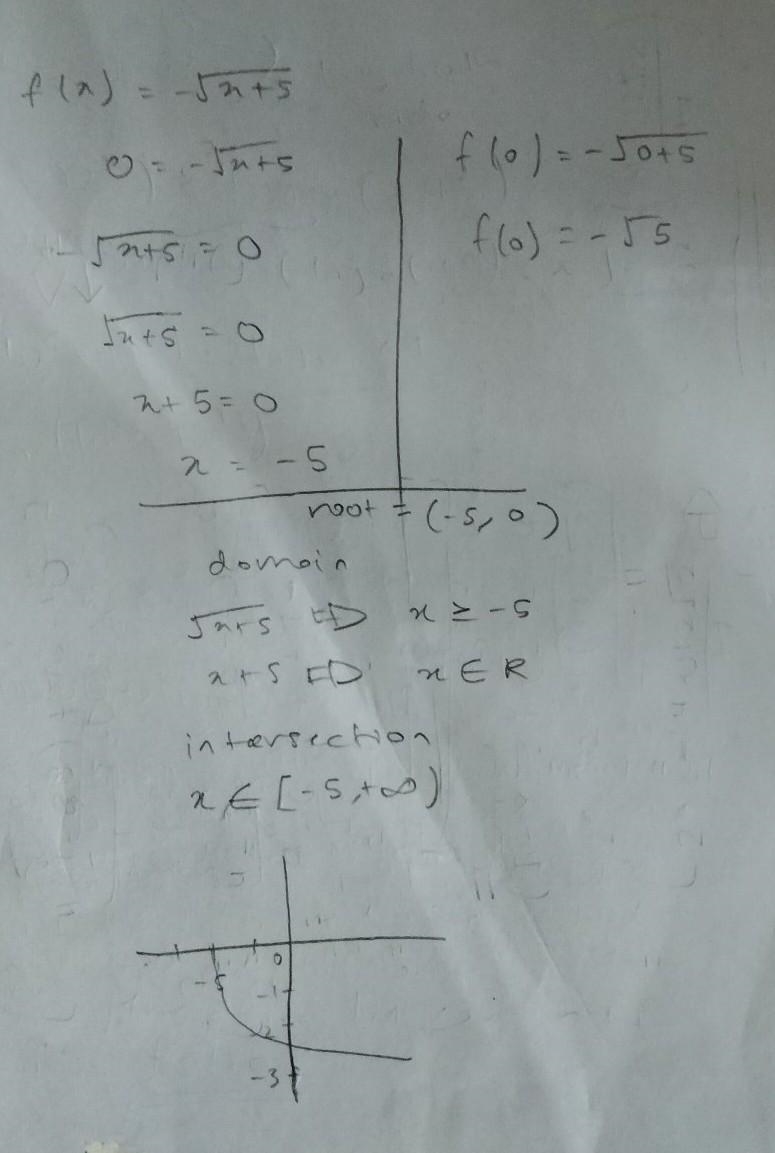 f(x) = -√x+5
0 = -√x+5
-√x+5 = 0
√x+5 = 0
x+5=0
x = -5
f(0) = -√0+5
f(0) = -√5
root = (-5, 0)
domain
√x+5 ⇒ x ≥ -5
x+5 ⇒ x ∈ R
intersection
x ∈ [-5,+∞)
0
-5
-1
-2
-3